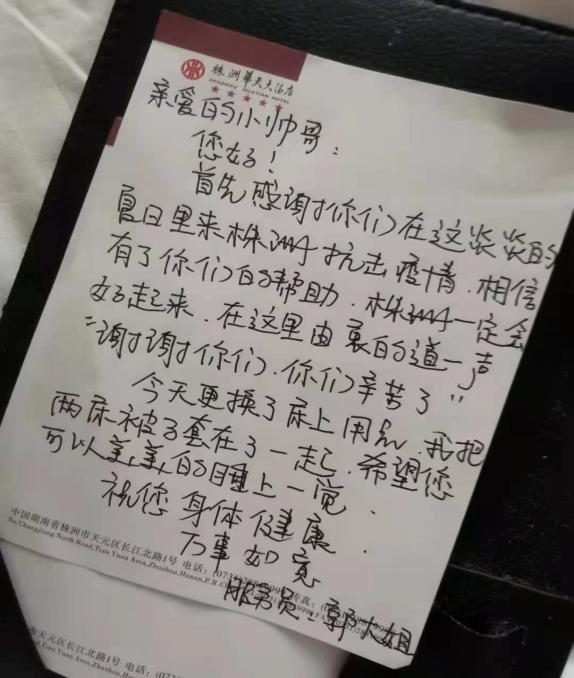 株洲華天大酒店
ZHUZHOU HUATIAN HOTEL
亲爱的小帅哥：
您好！
首先感谢你们在这炎炎的
夏日里来株洲抗击疫情.相信
有了你们的帮助.株洲一定会
好起来.在这里由衷的道一声
"谢谢你们.你们辛苦了"
今天更换了床上用品,我把
两床被子套在了一起.希望您
可以美美的睡上一觉.
祝您身体健康.
万事如意
服务员:郭大姐
中国湖南省株洲市天元区长江北路1号 电话：(0731)
No.Changjiang North Road,Tian Yuan Area,Zhuzhou,Hunan,P.R.C
市天元区长江北路1号 电话：(07
Yuan Area,Zhuzhou,Hunan